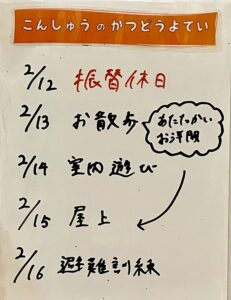 こんしゅうのかつどうよてい
2/12 振替休日
2/13 お散歩
あたたかい
お洋服
2/14 室内遊び
2/15 屋上
2/16 避難訓練